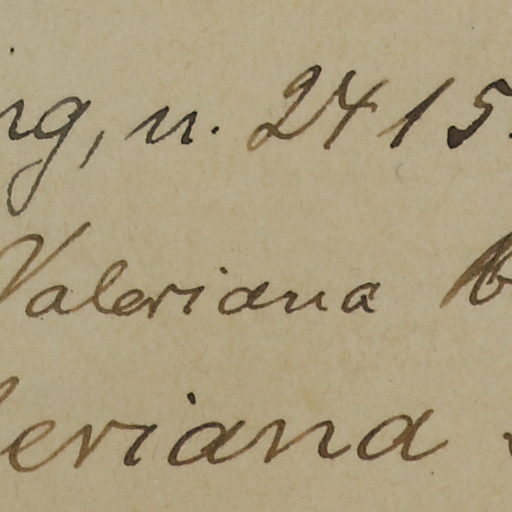 ng, n. 2415.
Valeriana
eriana